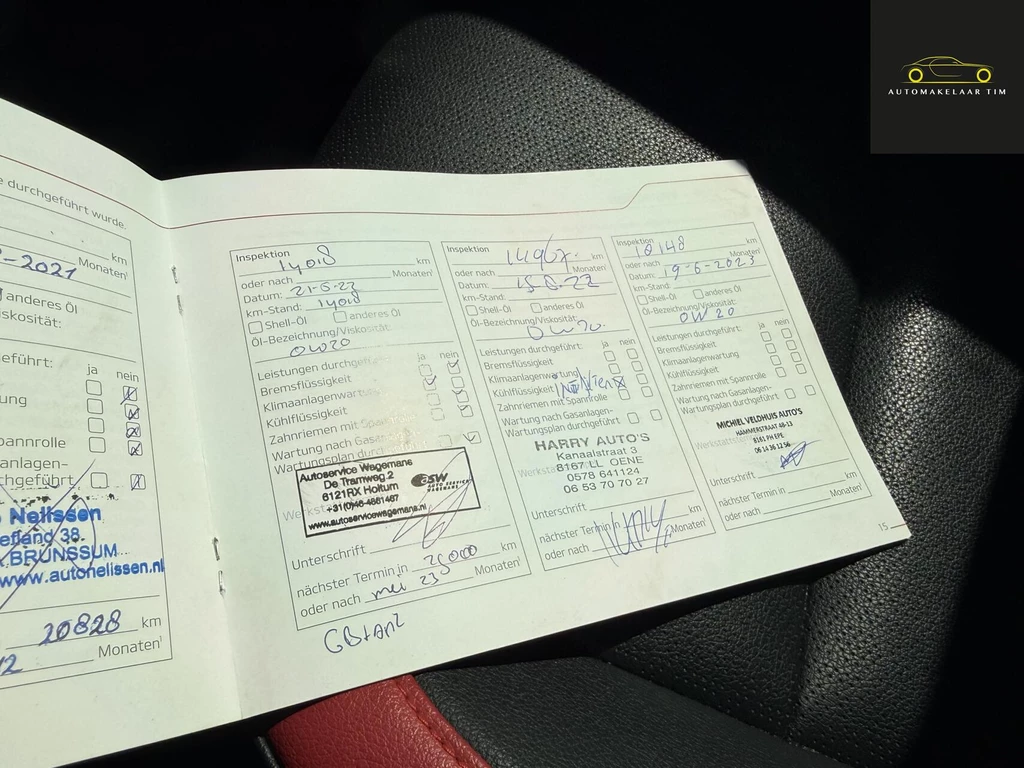 AUTOMAKELAAR TIM
e durchgeführt wurde.
-2021
Monaten¹
anderes Öl
iskosität:
eführt:
ja nein
ung
pannrolle
anlagen-
chgeführt
Nelissen
effland 38.
BRUNSSUM
www.autonelissen.nl
20828 km
Monaten¹
Inspektion
14018 km
oder nach Monaten¹
Datum: 21-5-22
km-Stand: 14018
Shell-Öl anderes Öl
Öl-Bezeichnung/Viskosität:
0W20
Leistungen durchgeführt: ja nein
Bremsflüssigkeit
Klimaanlagenwartung
Kühlflüssigkeit
Zahnriemen mit Spannrolle
Wartung nach Gasanlagen-
Wartungsplan durchgeführt
Autoservice Wagemans
De Tramweg 2
6121RX Holtum
+31(0)46-4861467
www.autoservicewagemans.nl
ASW
AUTO SERVICE
WAGEMANS
Unterschrift
nächster Termin in 25000 km
oder nach mei 23 Monaten¹
Inspektion
14967 km
oder nach Monaten¹
Datum: 15-8-22
km-Stand:
Shell-Öl anderes Öl
Öl-Bezeichnung/Viskosität:
0W20.
Leistungen durchgeführt: ja nein
Bremsflüssigkeit
Klimaanlagenwartung
Kühlflüssigkeit
Zahnriemen mit Spannrolle
Wartung nach Gasanlagen-
Wartungsplan durchgeführt
HARRY AUTO'S
Kanaalstraat 3
8167 LL OENE
0578 641124
06 53 70 70 27
Unterschrift
nächster Termin in km
oder nach Monaten¹
Inspektion
18148 km
oder nach Monaten¹
Datum: 19-6-2023
km-Stand:
Shell-Öl anderes Öl
Öl-Bezeichnung/Viskosität:
0W20
Leistungen durchgeführt: ja nein
Bremsflüssigkeit
Klimaanlagenwartung
Kühlflüssigkeit
Zahnriemen mit Spannrolle
Wartung nach Gasanlagen-
Wartungsplan durchgeführt
MICHIEL VELDHUIS AUTO'S
HAMMERSTRAAT 48-13
8161 PH EPE
06 14 36 12 56
Unterschrift
nächster Termin in km
oder nach Monaten¹
15